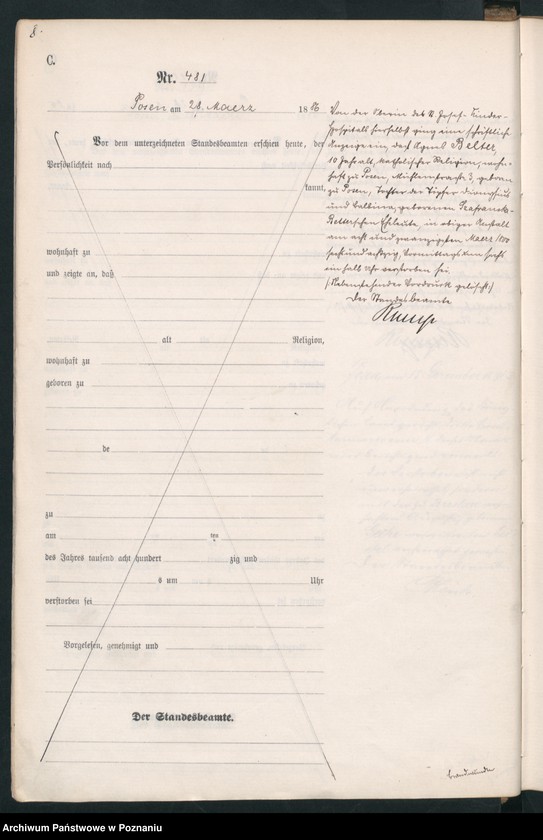 C.
Nr. 481
Posen am 28. Maerz 1886
Vor dem unterzeichneten Standesbeamten erschien heute, der
Persönlichkeit nach
kannt,
wohnhaft zu
und zeigte an, daß
alt Religion,
wohnhaft zu
geboren zu
de
zu
am ten
des Jahres tausend acht hundert zig und
s um Uhr
verstorben sei
Vorgelesen, genehmigt und
Der Standesbeamte.
Von der Oberin des St. Josef-Kinder-
hospitals hierselbst ging eine schriftliche
Anzeige ein, daß Agnes Belter,
10 Jahr alt, katholischer Religion, wohn-
haft zu Posen, 3, geboren
zu Posen, Tochter der
und Balbina, geborenen
Belter'schen Eheleute, in obiger Anstalt
am acht und zwanzigsten Maerz 1800
sechs und achtzig, Vormittags um sechs
ein halb Uhr verstorben sei
(Nebenstehender Vordruck gelöscht)
Der Standesbeamte
Archiwum Państwowe w Poznaniu